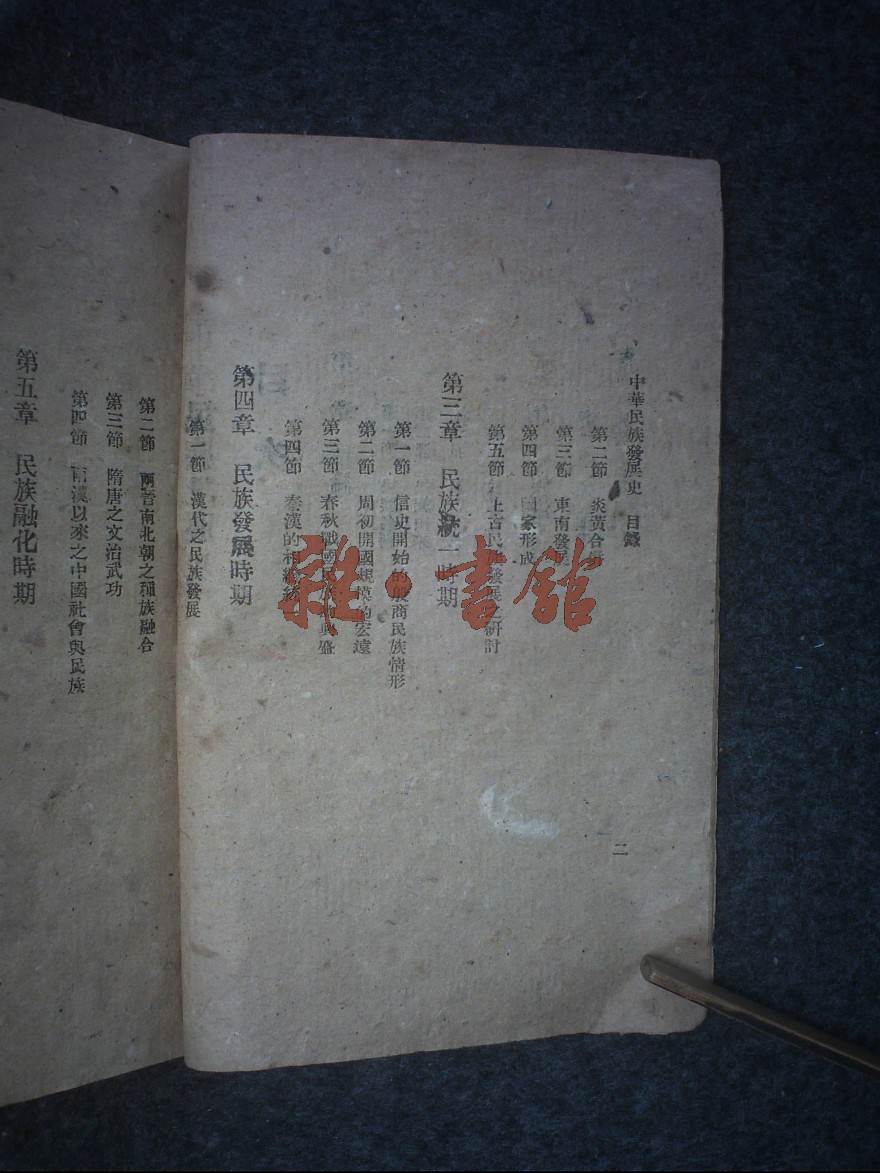 中華民族發展史 目錄
第二節 炎黃合
第三節 東南發展
第四節 國家形成
第五節 上古民族發展之研討
第三章 民族統一時期
第一節 信史開始的殷商民族情形
第二節 周初開國規模的宏遠
第三節 春秋戰國民族的興盛
第四節 秦漢的相繼統一
第四章 民族發展時期
第一節 漢代之民族發展
二
第二節 兩晉南北朝之種族融合
第三節 隋唐之文治武功
第四節 兩漢以來之中國社會與民族
第五章 民族融化時期
雜·書館